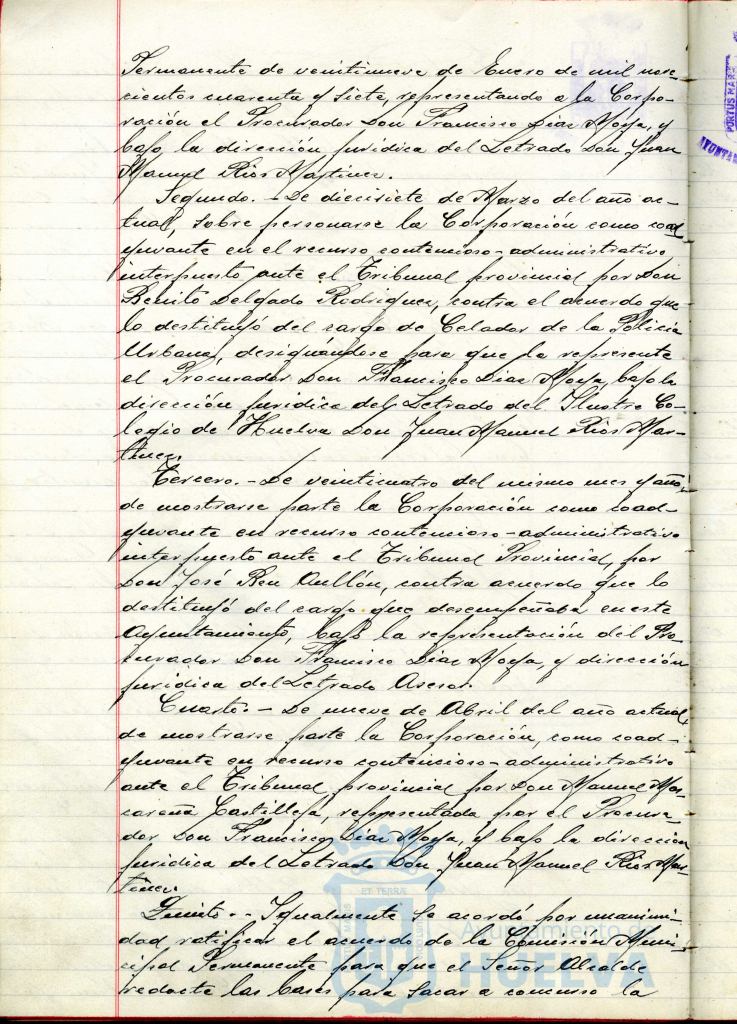 Permanente de veintinueve de Enero de mil nove-
cientos cuarenta y siete, representando a la Corpo-
ración el Procurador Don Francisco Diaz Moya, y
bajo la dirección juridica del Letrado Don Juan
Manuel Rios Martinez.
Segundo. - De diecisiete de Marzo del año ac-
tual, sobre personarse la Corporación como coad-
yuvante en el recurso contencioso-administrativo
interpuesto ante el Tribunal provincial por Don
Benito Delgado Rodriguez, contra el acuerdo que
lo destituyó del cargo de Celador de la Policia
Urbana, designándose para que la represente
el Procurador Don Francisco Diaz Moya, bajo la
dirección juridica del Letrado del Ilustre Co-
legio de Huelva Don Juan Manuel Rios Mar-
tinez.
Tercero. - De veinticuatro del mismo mes y año,
de mostrarse parte la Corporación como coad-
yuvante en recurso contencioso-administrativo
interpuesto ante el Tribunal Provincial, por
Don José Rey Aullón, contra acuerdo que lo
destituyó del cargo que desempeñaba en este
Ayuntamiento, bajo la representación del Pro-
curador Don Francisco Diaz Moya, y dirección
juridica del Letrado Asesor.
Cuarto. - De nueve de Abril del año actual,
de mostrarse parte la Corporación, como coad-
yuvante en recurso contencioso-administrativo
ante el Tribunal provincial por Don Manuel
Castilleja, representada por el Procura-
dor Don Francisco Diaz Moya, y bajo la dirección
juridica del Letrado Don Juan Manuel Rios Mar-
tinez.
Quinto. - Igualmente se acordó por unanimi-
dad ratificar el acuerdo de la Comisión Muni-
cipal Permanente para que el Señor Alcalde
redacte las bases para sacar a concurso la
PORTUS MARIS
AYUNTAM
ET TERRÆ
Ayuntamiento de
HUELVA